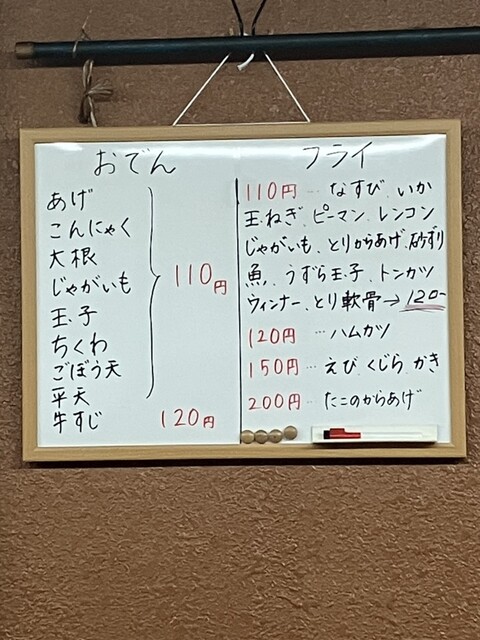 おでん
あげ
こんにゃく
大根
じゃがいも
玉子
ちくわ
ごぼう天
平天
110円
牛すじ 120円
フライ
110円…なすび、いか
玉ねぎ、ピーマン、レンコン
じゃがいも、とりからあげ、砂ずり
魚、うずら玉子、トンカツ
ウィンナー、とり軟骨→120-
120円…ハムカツ
150円…えび、くじら、かき
200円…たこのからあげ